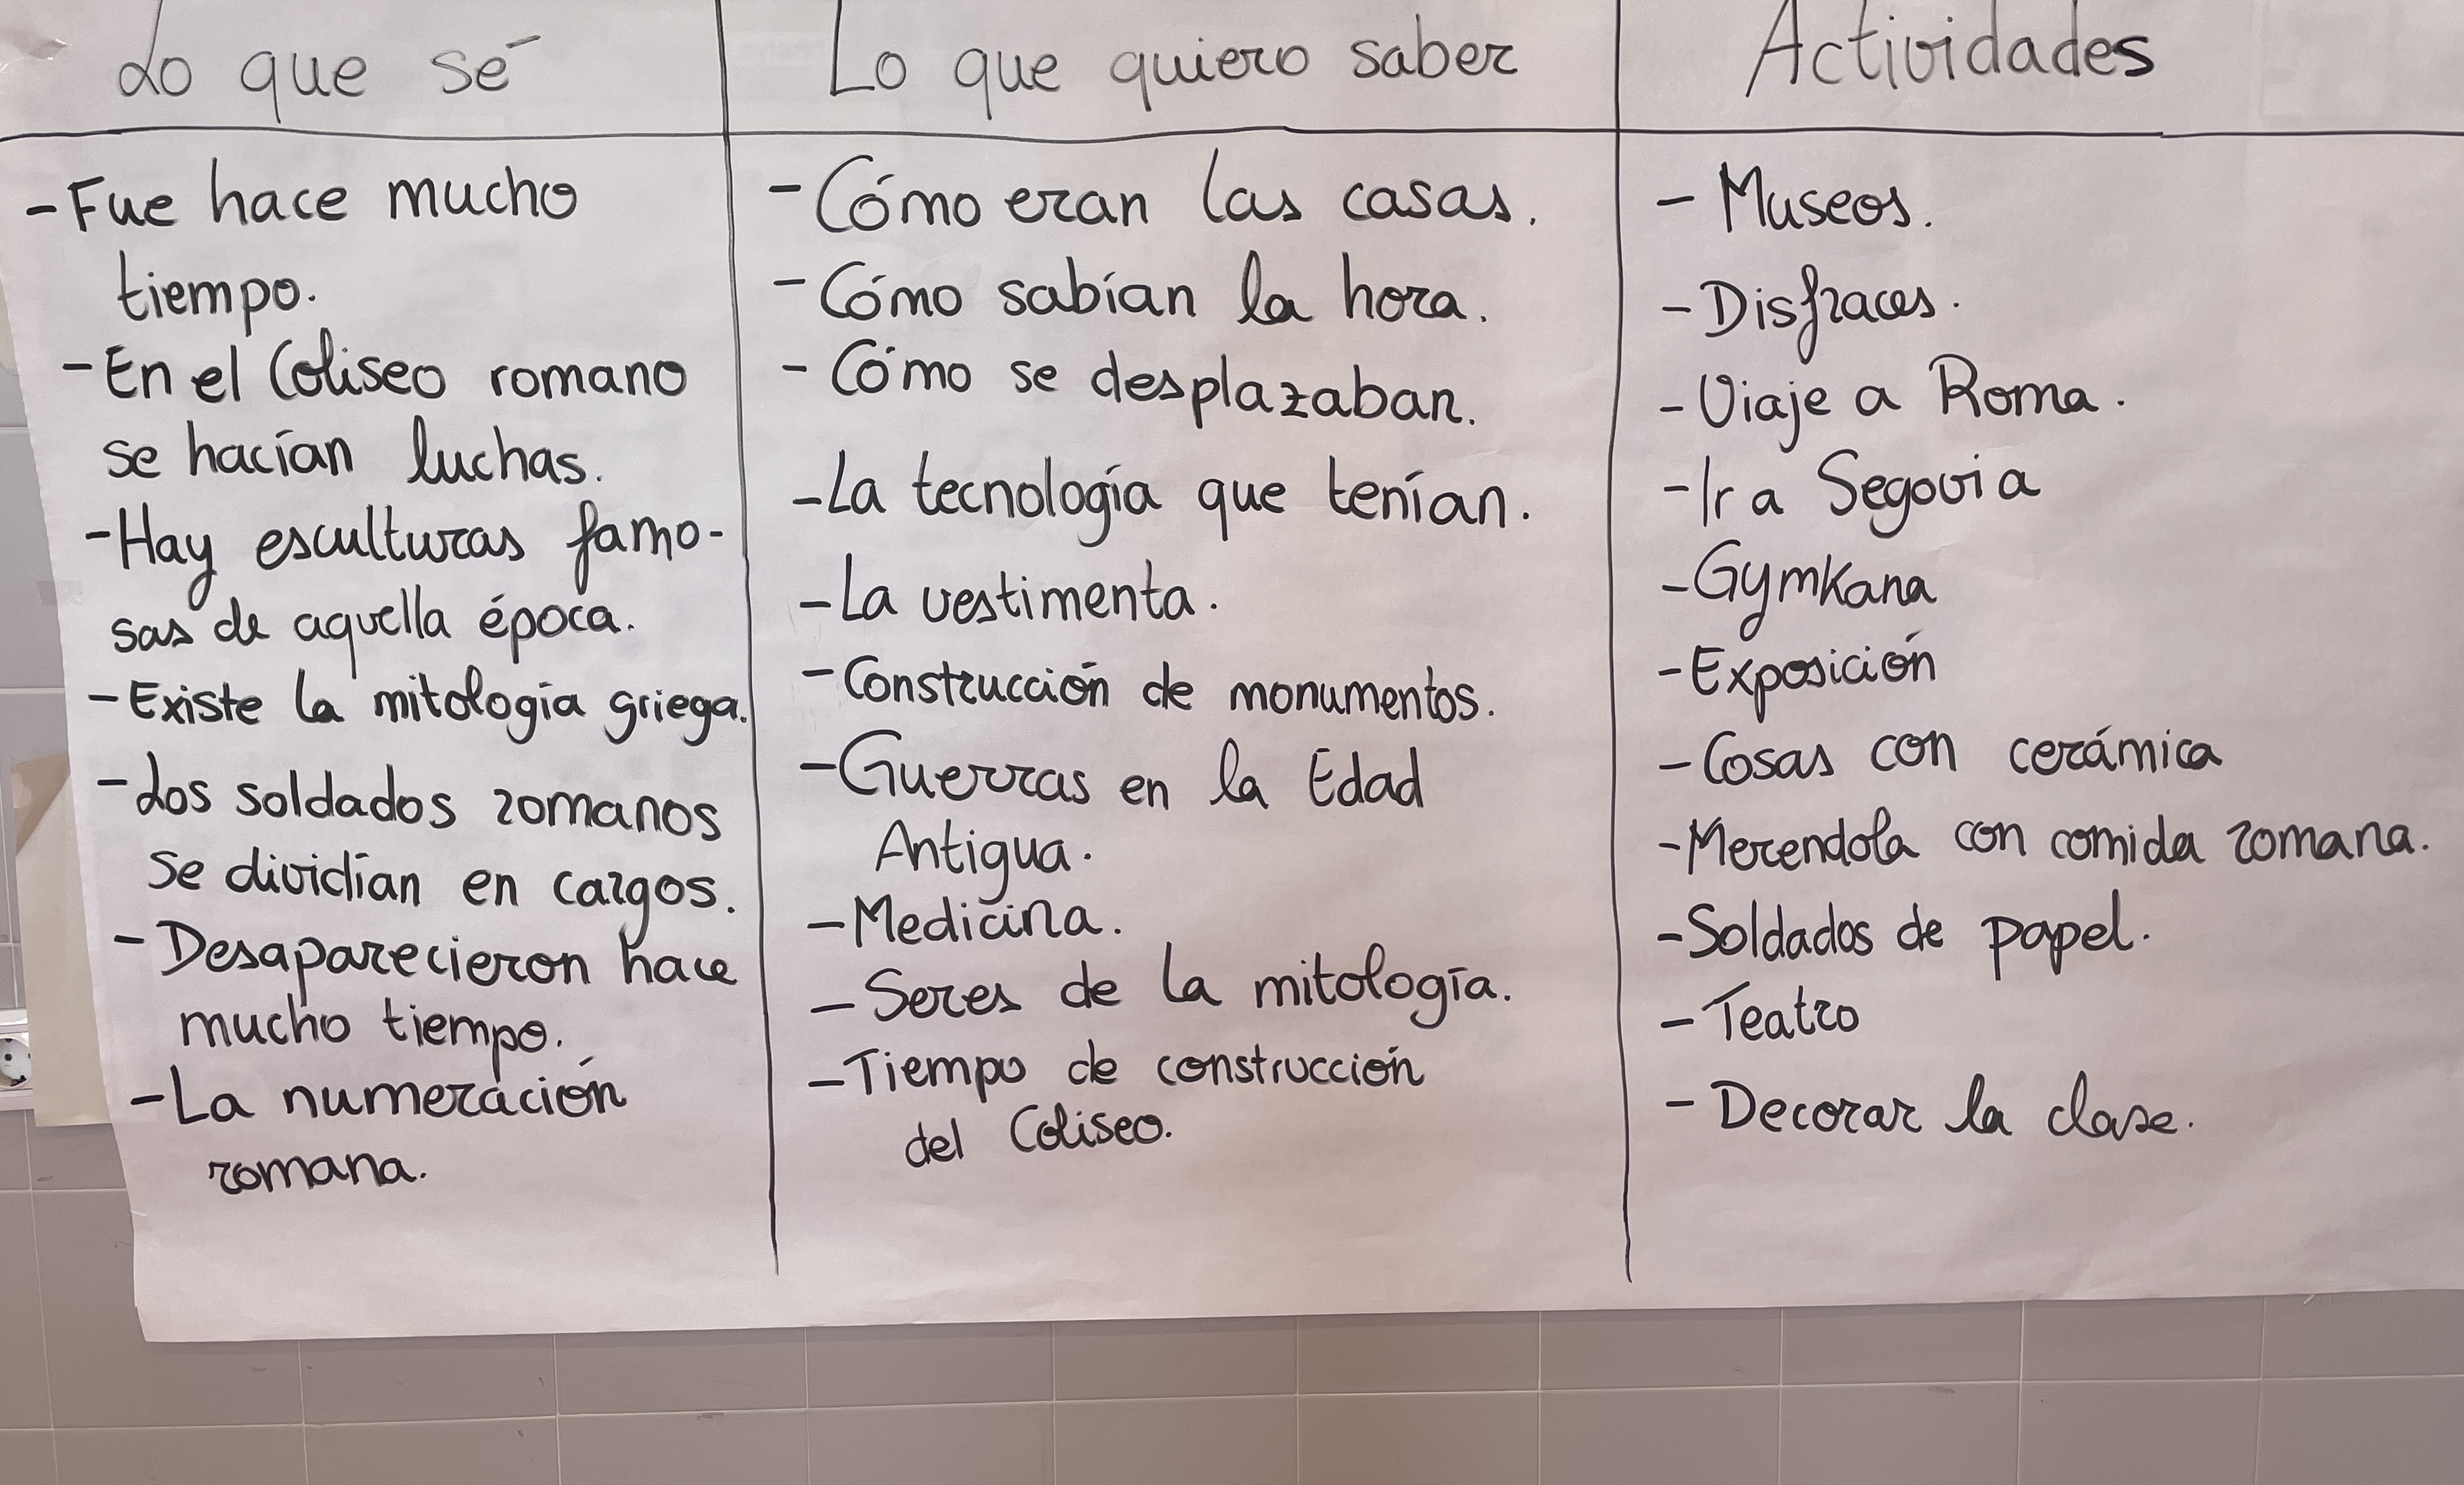 Lo que sé
- Fue hace mucho
tiempo.
- En el Coliseo romano
se hacían luchas.
- Hay esculturas famo-
sas de aquella época.
- Existe la mitología griega.
- Los soldados romanos
se dividían en cargos.
- Desaparecieron hace
mucho tiempo.
- La numeración
romana.
Lo que quiero saber
- Cómo eran las casas.
- Cómo sabían la hora.
- Cómo se desplazaban.
- La tecnología que tenían.
- La vestimenta.
- Construcción de monumentos.
- Guerras en la Edad
Antigua.
- Medicina.
- Seres de la mitología.
- Tiempo de construcción
del Coliseo.
Actividades
- Museos.
- Disfraces.
- Viaje a Roma.
- Ir a Segovia
- Gymkana
- Exposición
- Cosas con cerámica
- Merendola con comida romana.
- Soldados de papel.
- Teatro
- Decorar la clase.